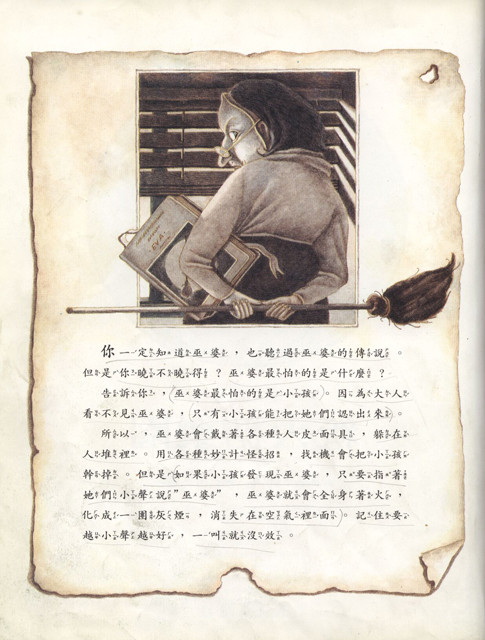 EVA
你一定知道巫婆，也聽過巫婆的傳說。
但是你曉不曉得？巫婆最怕的是什麼？
告訴你，(巫婆最怕的是小孩)。因為大人
看不見巫婆，(只有小孩能把她們認出來)。
所以，巫婆會戴著各種人皮面具，躲在
人堆裡。用各種妙計怪招，找機會把小孩
幹掉。但是(如果小孩發現巫婆，只要指著
她們小聲說"巫婆"，巫婆就會全身著火，
化成一團灰煙，消失在空氣裡面)。記住要
越小聲越好，一叫就沒效。